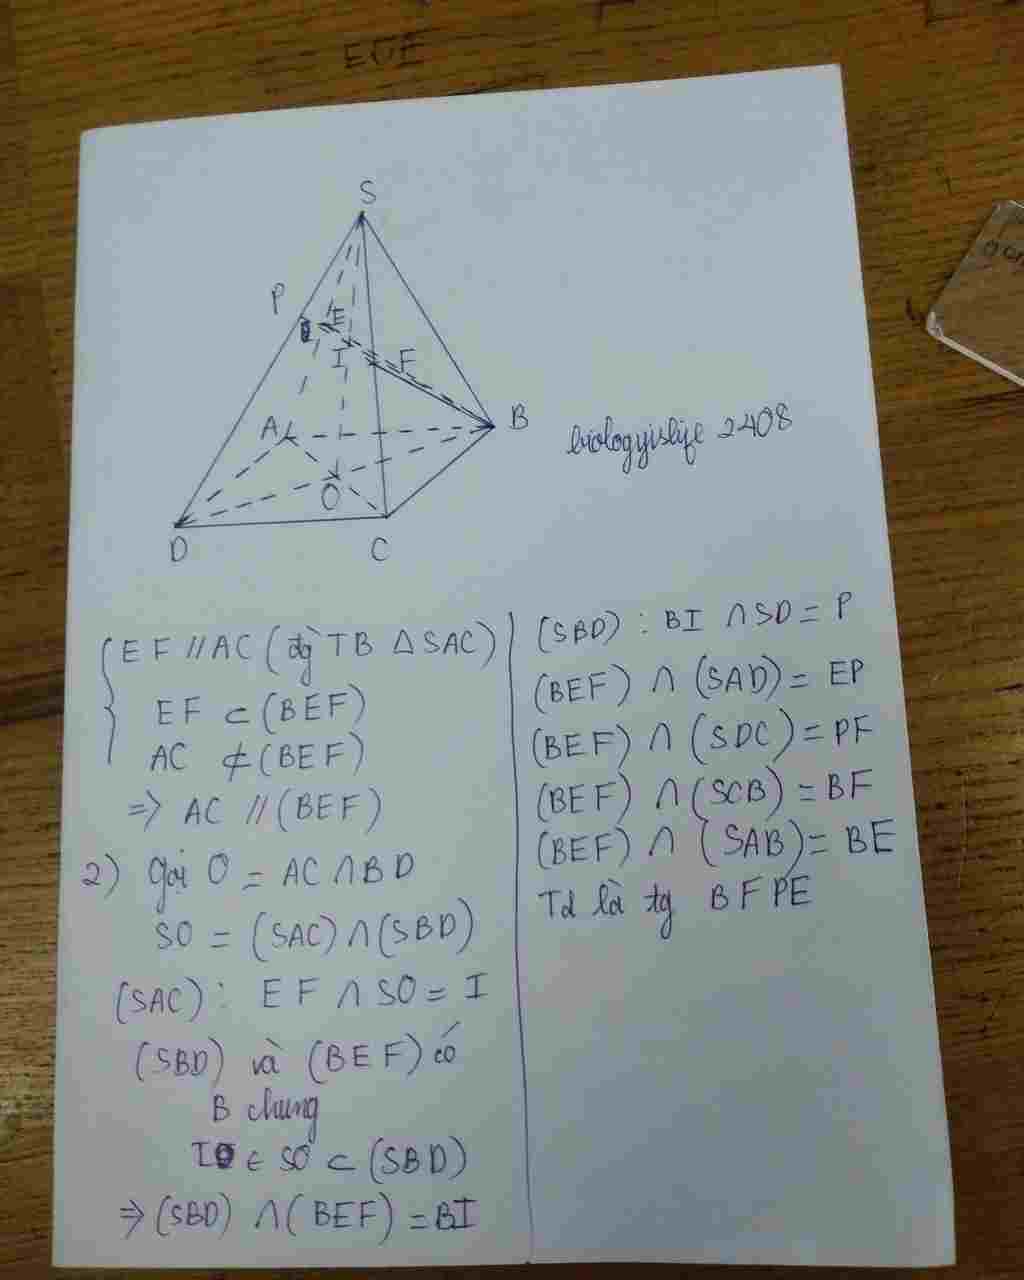 EOE
S
P
E
I
F
A
B
O
D
C
biologyislife 2408
EF // AC (đg TB Δ SAC)
EF ⊂ (BEF)
AC ⊄ (BEF)
=> AC // (BEF)
2) Gọi O = AC ∩ BD
SO = (SAC) ∩ (SBD)
(SAC) : EF ∩ SO = I
(SBD) và (BEF) có
B chung
I ∈ SO ⊂ (SBD)
=> (SBD) ∩ (BEF) = BI
(SBD) : BI ∩ SD = P
(BEF) ∩ (SAD) = EP
(BEF) ∩ (SDC) = PF
(BEF) ∩ (SCB) = BF
(BEF) ∩ (SAB) = BE
Td là tg BFPE